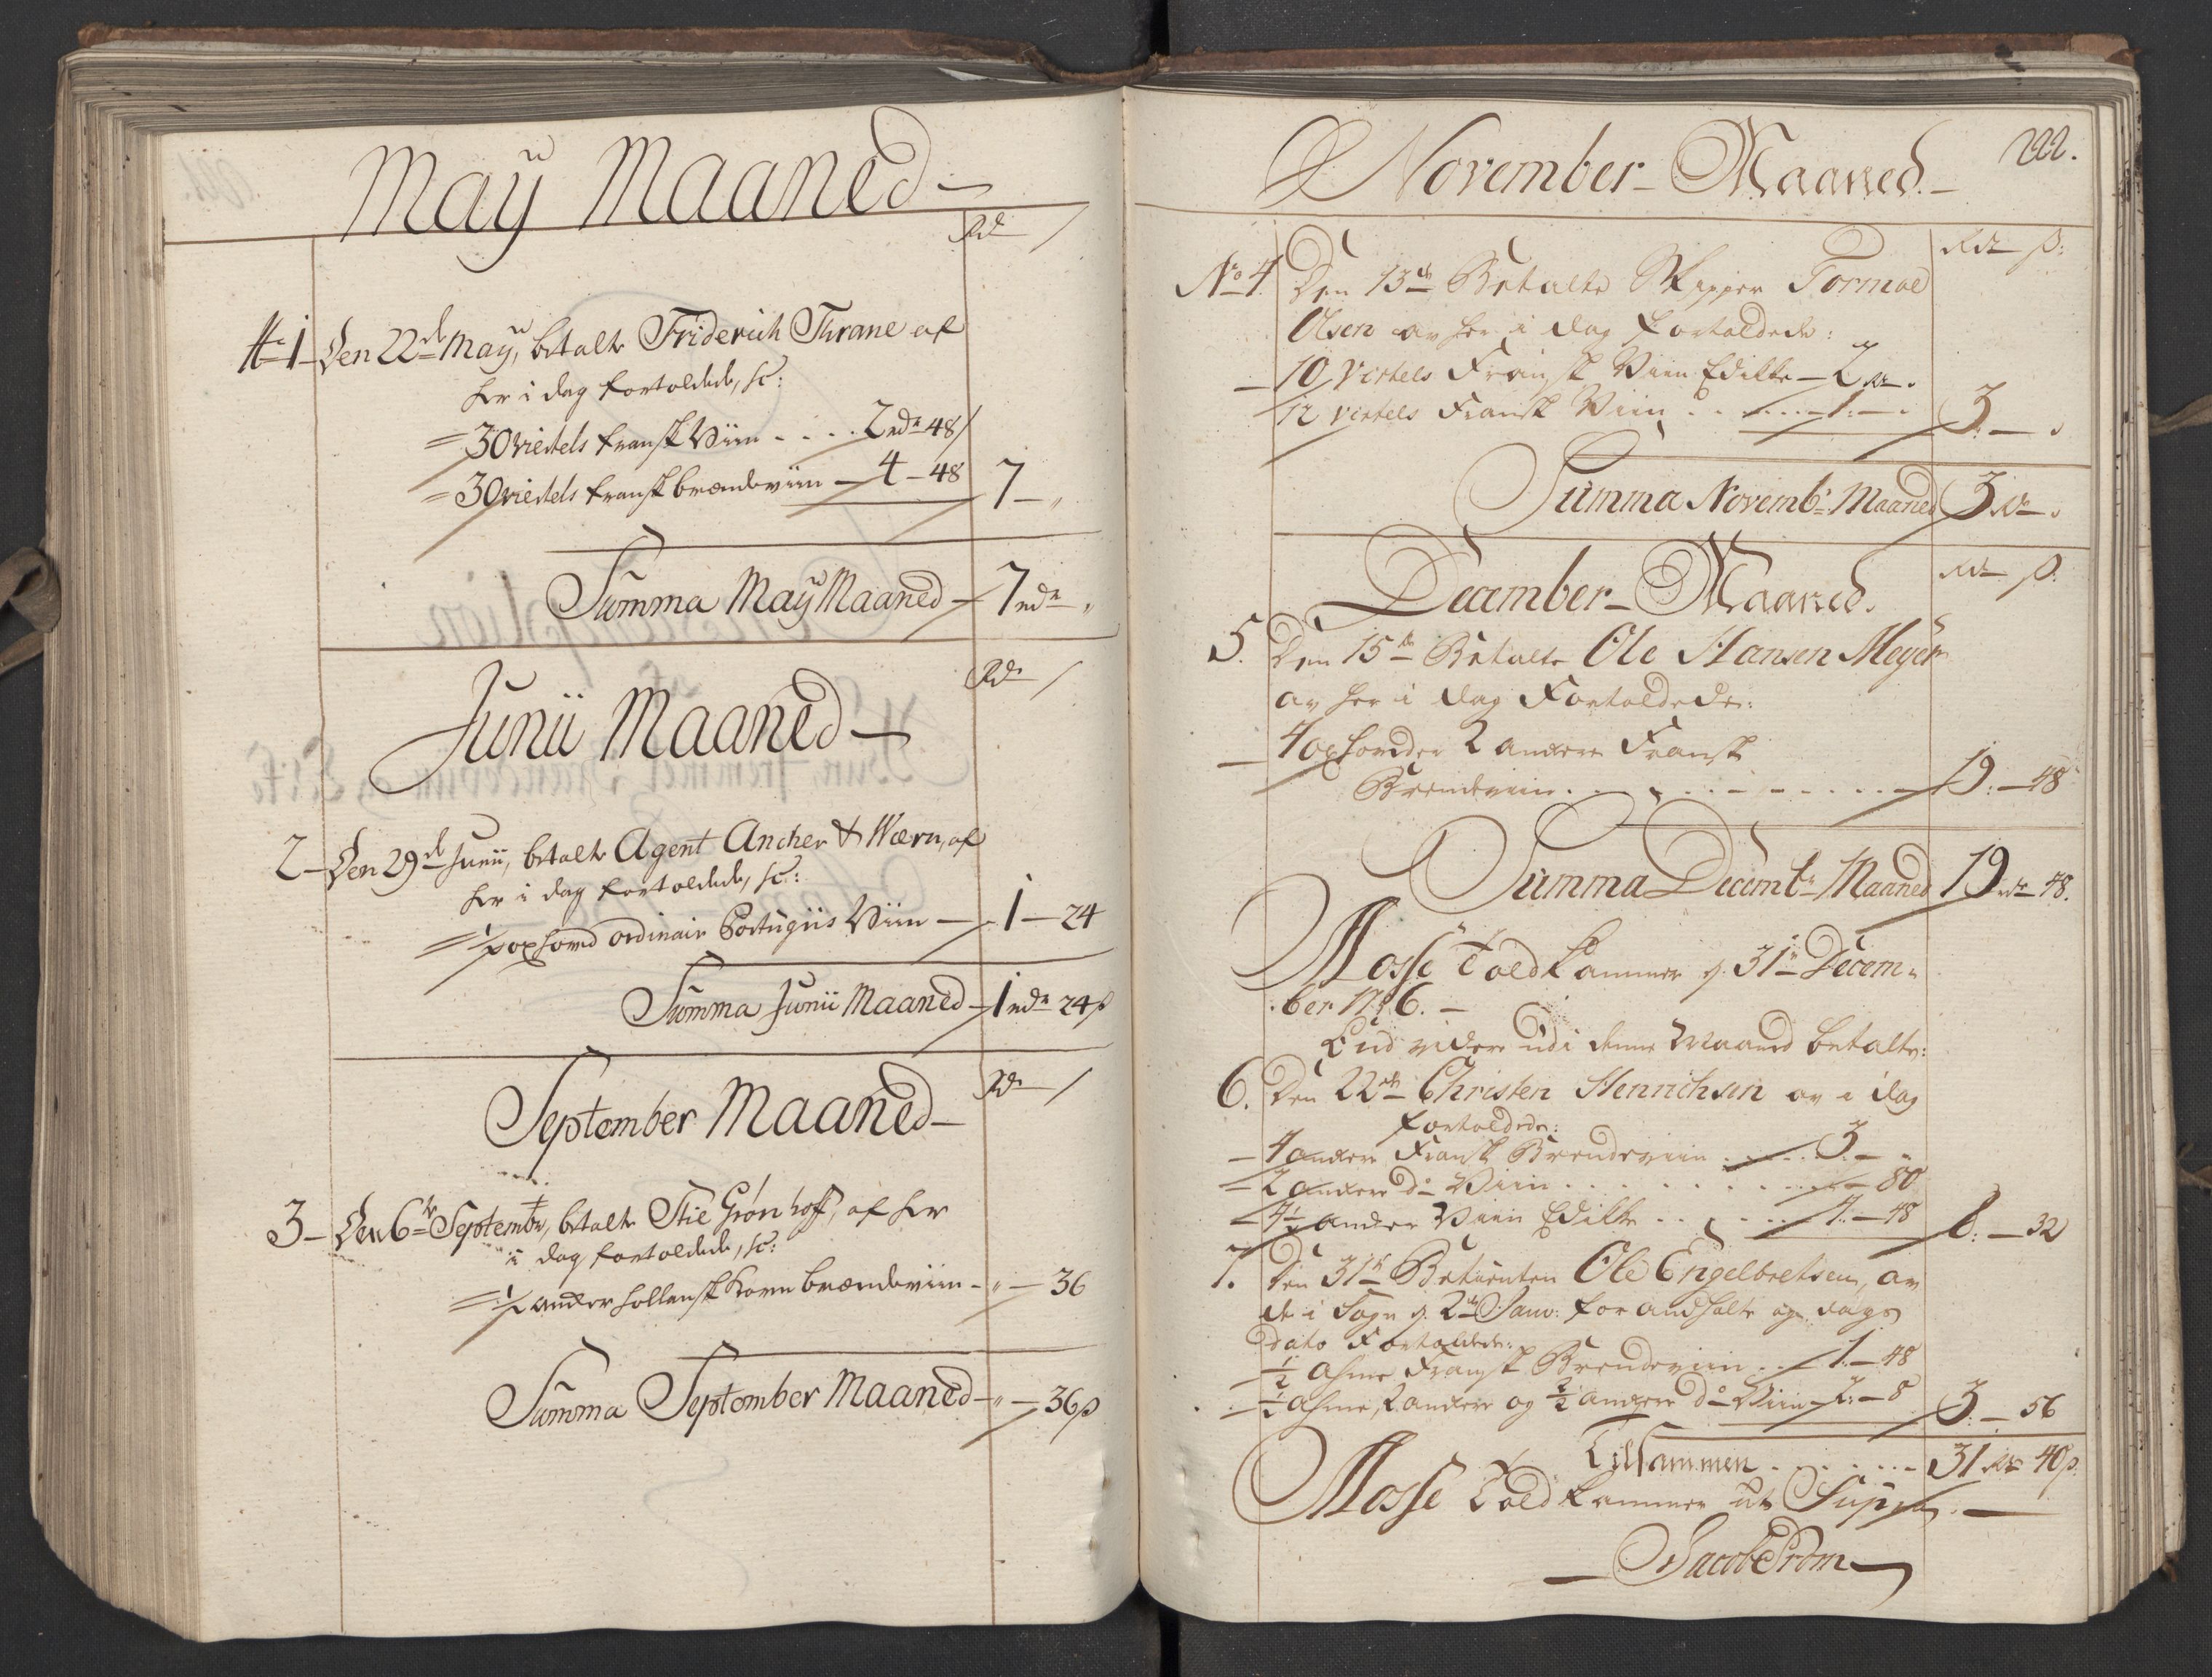 Maÿ Maaned
Rdr
No 1 Den 22de Maÿ, betalte Friderich Thrane af
her i dag fortoldede, sc:
30 viertels fransk Viin - - - - 2 rdr 48
30 viertels fransk brændeviin - 4 - 48 7 -
Summa Maÿ Maaned - 7 rdr
Rdr
Junii Maaned
2 - Den 29de Junii, betalte Agent Ancher & Wærn, af
her i dag fortoldede, sc:
1 oxhovd ordinair Portugiis Viin - 1 - 24
Summa Junii Maaned - 1 rdr 24 ß
Rdr
September Maaned
3 - Den 6te Septembr, betalte Stie Grønhoff, af her
i dag fortoldede, sc:
1/2 ancker hollansk Korn brændeviin - " - 36
Summa September Maaned - " - 36 ß
222.
November - Maaned. -
Rdr ß:
No 4. Den 13de Betalte Skipper Tormoe
Olsen av her i dag fortoldede:
10 viertels Fransk Viin Edikke - 2 rdr
12 viertels Fransk Viin . . . . . 1. - 3. -
Summa Novembr: Maaned 3 rdr
December - Maaned.
Rdr ß:
5. Den 15de Betalte Ole Hansen Meÿer
av her i dag Fortoldede:
4 oxhovder 2 ancker Fransk
Brendeviin . . . . . . . 19. - 48
Summa Decembr Maaned 19 rdr 48.
Mosse Told Kammer d. 31te Decem-
ber 1786. -
End videre udi denne Maaned betalte:
6. Den 22de Christen Henrichsen av i dag
fortoldede:
4 ancker Fransk Brendeviin . . . . 3. -
2 ancker do Viin . . . . . . . - 80
4 1/2 ancker Viin Edikke . . . . . 1. - 48 8. - 32
7. Den 31te Betienten Ole Engelbretsen, av
de i Søgn d. 2de Janv: forandholte og dags
dato Fortoldede:
1/2 Ahme Fransk Brendeviin . . 1. - 48
1/2 Ahme, 2 ancker og 1/2 ancker do Viin - 2. - 8 3. - 56
Tilsammen . . . . . - 31 rdr 40 ß.
Mosse Told Kammer ut Supra. -
Jacob Prøm